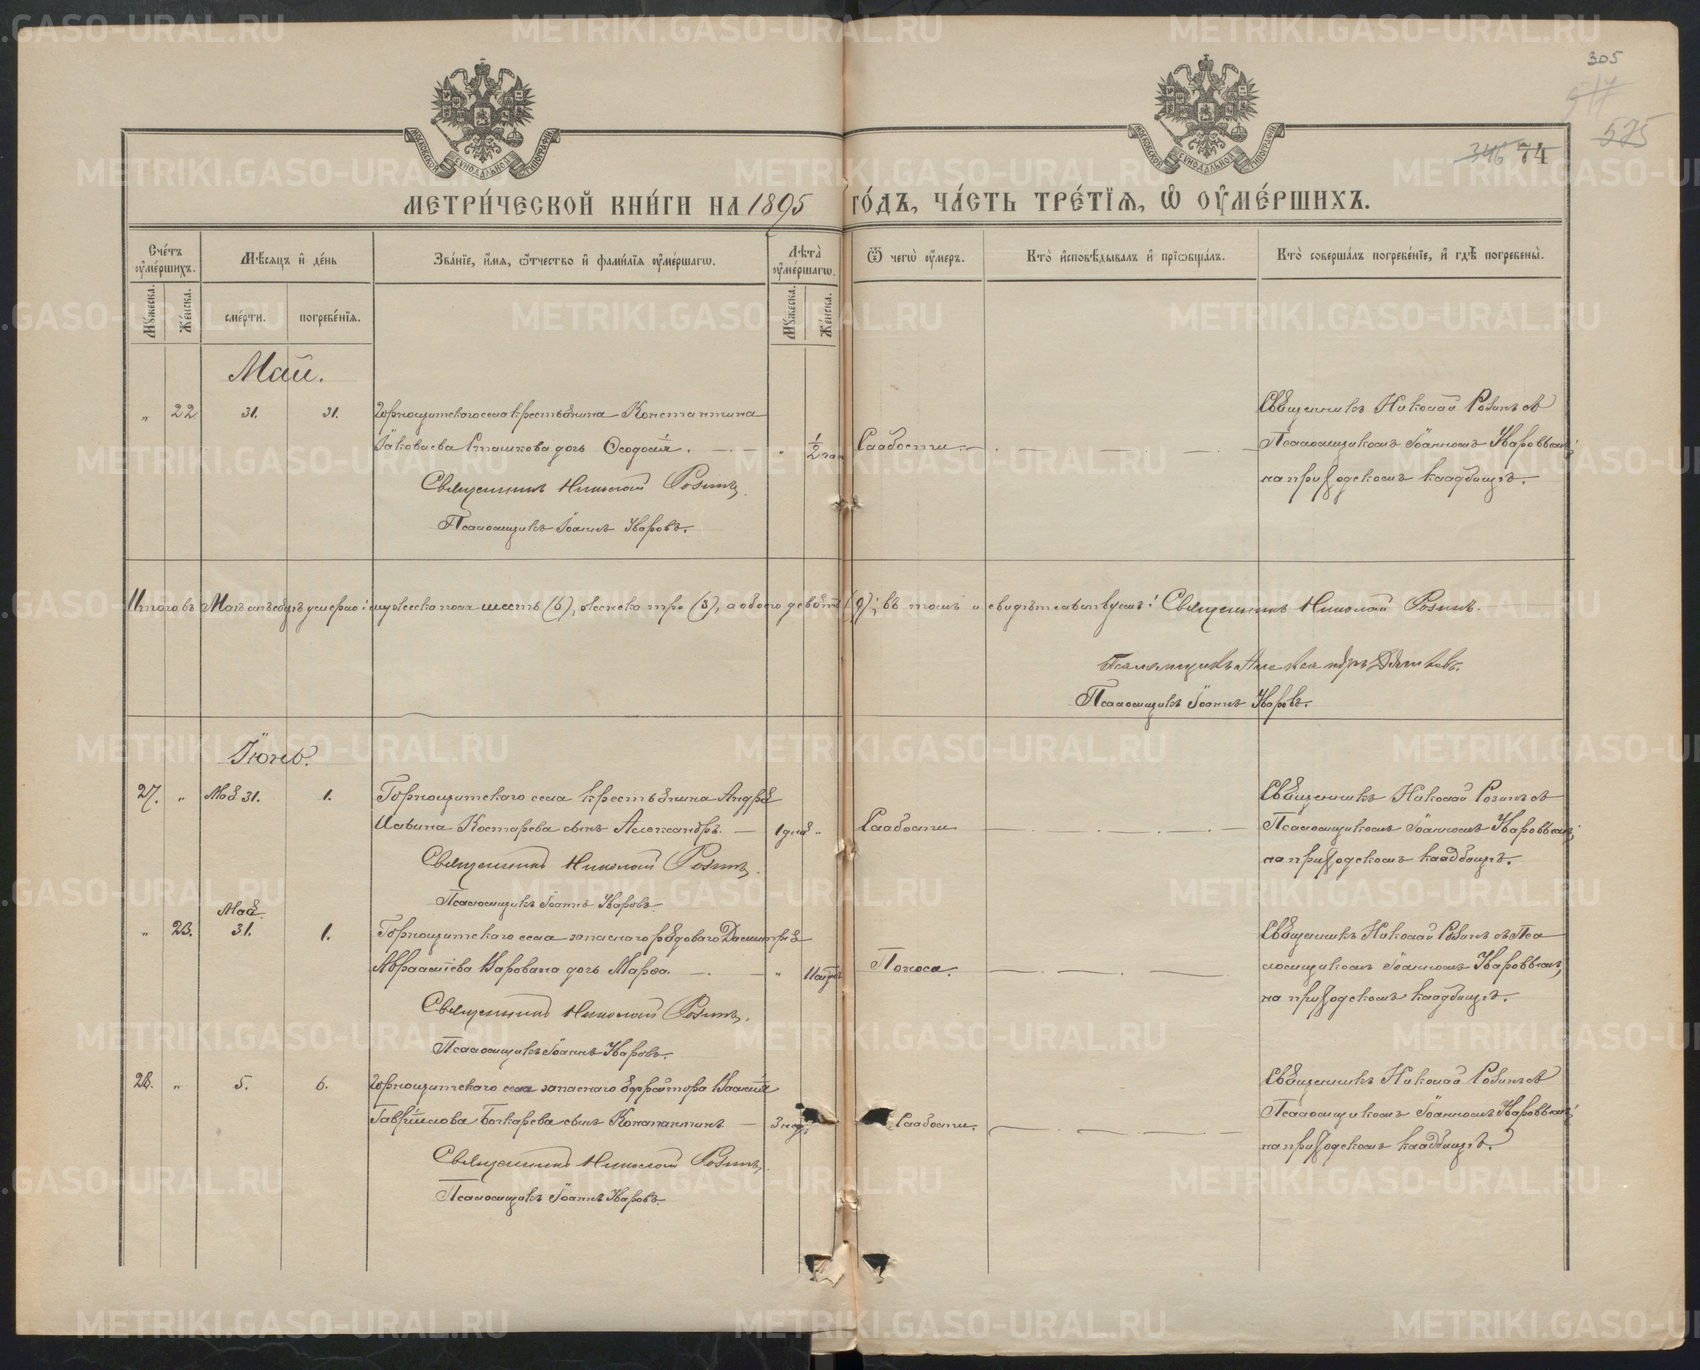 305
517
525
346 74
МОСКОВСКОЙ СѴНОДАЛЬНОЙ ТИПОГРАФІИ
МОСКОВСКОЙ СѴНОДАЛЬНОЙ ТИПОГРАФІИ
МЕТРИ́ЧЕСКОЙ КНИ́ГИ НА 1895 ГО́ДЪ, ЧА́СТЬ ТРЕ́ТІЯ, Ѡ ОУМЕ́РШИХЪ.
Сче́тъ оуме́ршихъ.
Мꙋ́жеска.
Же́нска.
Мѣ́сяцъ и де́нь
сме́рти.
погребе́нїя.
Зва́нїе, и́мя, ѻ́тчество и фами́лїя оуме́ршагѡ.
Лѣта̀ оуме́ршагѡ.
Мꙋ́жеска.
Же́нска.
Ѿ чегѡ̀ оу́меръ.
Кто̀ и҆сповѣ́дывалъ и҆ прїѡбща́лъ.
Кто̀ соверша́лъ погребе́нїе, и҆ гдѣ̀ погребены̀.
Май.
„ 22 31. 31. Горнощитскаго села крестьянина Константина
Іаковлева Сташкова дочь Ѳеодосія. „ 1/2 Слабости
Священникъ Николай Розинъ.
Псаломщикъ Іоаннъ Уваровъ.
Священникъ Николай Розинъ съ
Псаломщикомъ Іоанномъ Уваровымъ;
на приходскомъ кладбищѣ.
Итого въ Маѣ мѣсяцѣ умерло: мужеска пола шесть (6), женска три (3), а обоего девять (9); въ томъ и свидѣтельствуемъ: Священникъ Николай Розинъ.
Псаломщикъ Александръ
Псаломщикъ Іоаннъ Уваровъ.
Іюнь.
27. „ Мая 31. 1. Горнощитскаго села крестьянина Андрея
Костарева сынъ Александръ. 1 дня „ Слабости
Священникъ Николай Розинъ.
Псаломщикъ Іоаннъ Уваровъ.
Священникъ Николай Розинъ съ
Псаломщикомъ Іоанномъ Уваровымъ;
на приходскомъ кладбищѣ.
Мая
„ 23. 31. 1. Горнощитскаго села запаснаго рядоваго Димитрія
Аврааміева дочь Марѳа. „ Поноса.
Священникъ Николай Розинъ.
Псаломщикъ Іоаннъ Уваровъ.
Священникъ Николай Розинъ съ Пса
ломщикомъ Іоанномъ Уваровымъ;
на приходскомъ кладбищѣ.
28. „ 5. 6. Горнощитскаго села запаснаго ефрейтора Василія
Гавріилова Бочкарева сынъ Константинъ 3 нед. Слабости.
Священникъ Николай Розинъ.
Псаломщикъ Іоаннъ Уваровъ.
Священникъ Николай Розинъ съ
Псаломщикомъ Іоанномъ Уваровымъ;
на приходскомъ кладбищѣ.
METRIKI.GASO-URAL.RU